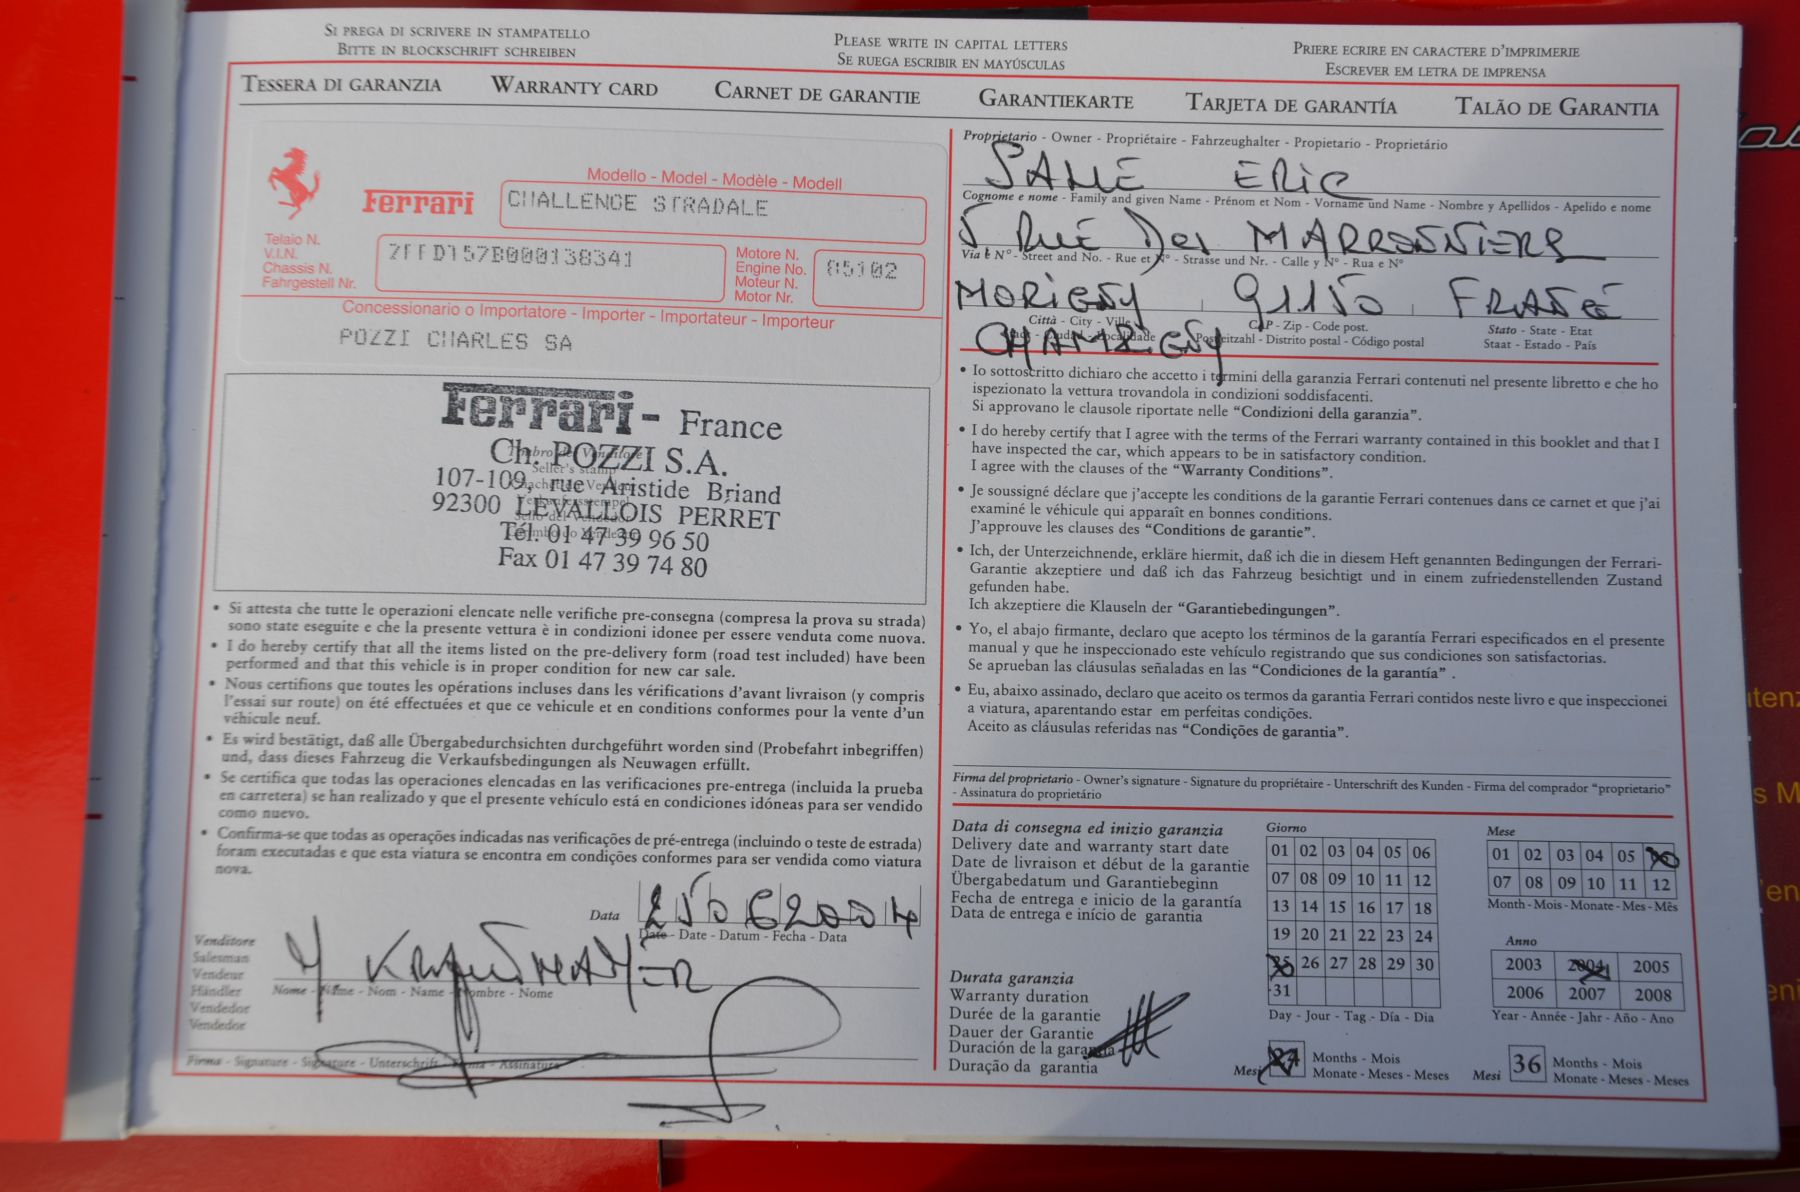 SI PREGA DI SCRIVERE IN STAMPATELLO
BITTE IN BLOCKSCHRIFT SCHREIBEN
PLEASE WRITE IN CAPITAL LETTERS
SE RUEGA ESCRIBIR EN MAYÚSCULAS
PRIERE ECRIRE EN CARACTERE D'IMPRIMERIE
ESCREVER EM LETRA DE IMPRENSA
TESSERA DI GARANZIA WARRANTY CARD CARNET DE GARANTIE GARANTIEKARTE TARJETA DE GARANTÍA TALÃO DE GARANTIA
Modello - Model - Modèle - Modell
Ferrari CHALLENGE STRADALE
Telaio N.
V.I.N.
Chassis N.
Fahrgestell Nr.
ZFFD157B000138341
Motore N.
Engine No.
Moteur N.
Motor Nr.
85102
Concessionario o Importatore - Importer - Importateur - Importeur
POZZI CHARLES SA
Ferrari - France
Ch. POZZI S.A.
107-109, rue Aristide Briand
92300 LEVALLOIS PERRET
Tél. 01 47 39 96 50
Fax 01 47 39 74 80
• Si attesta che tutte le operazioni elencate nelle verifiche pre-consegna (compresa la prova su strada)
sono state eseguite e che la presente vettura è in condizioni idonee per essere venduta come nuova.
• I do hereby certify that all the items listed on the pre-delivery form (road test included) have been
performed and that this vehicle is in proper condition for new car sale.
• Nous certifions que toutes les opérations incluses dans les vérifications d'avant livraison (y compris
l'essai sur route) on été effectuées et que ce vehicule et en conditions conformes pour la vente d'un
véhicule neuf.
• Es wird bestätigt, daß alle Übergabedurchsichten durchgeführt worden sind (Probefahrt inbegriffen)
und, dass dieses Fahrzeug die Verkaufsbedingungen als Neuwagen erfüllt.
• Se certifica que todas las operaciones elencadas en las verificaciones pre-entrega (incluida la prueba
en carretera) se han realizado y que el presente vehículo está en condiciones idóneas para ser vendido
como nuevo.
• Confirma-se que todas as operações indicadas nas verificações de pré-entrega (incluindo o teste de estrada)
foram executadas e que esta viatura se encontra em condições conformes para ser vendida como viatura
nova.
Data 25062004
Date - Date - Datum - Fecha - Data
Venditore
Salesman
Vendeur
Händler
Vendedor
Vendedor
Nome - Name - Nom - Name - Nombre - Nome
Firma - Signature - Signature - Unterschrift - Firma - Assinatura
Proprietario - Owner - Propriétaire - Fahrzeughalter - Propietario - Proprietário
ERIC
Cognome e nome - Family and given Name - Prénom et Nom - Vorname und Name - Nombre y Apellidos - Apelido e nome
5 RUE Des MARRONNIERS
Via e N° - Street and No. - Rue et N° - Strasse und Nr. - Calle y N° - Rua e N°
MORIGNY 91150 FRANCE
CHAMPIGNY
Città - City - Ville
CAP - Zip - Code post.
Postleitzahl - Distrito postal - Código postal
Stato - State - Etat
Staat - Estado - País
• Io sottoscritto dichiaro che accetto i termini della garanzia Ferrari contenuti nel presente libretto e che ho
ispezionato la vettura trovandola in condizioni soddisfacenti.
Si approvano le clausole riportate nelle “Condizioni della garanzia”.
• I do hereby certify that I agree with the terms of the Ferrari warranty contained in this booklet and that I
have inspected the car, which appears to be in satisfactory condition.
I agree with the clauses of the “Warranty Conditions”.
• Je soussigné déclare que j'accepte les conditions de la garantie Ferrari contenues dans ce carnet et que j'ai
examiné le véhicule qui apparaît en bonnes conditions.
J'approuve les clauses des “Conditions de garantie”.
• Ich, der Unterzeichnende, erkläre hiermit, daß ich die in diesem Heft genannten Bedingungen der Ferrari-
Garantie akzeptiere und daß ich das Fahrzeug besichtigt und in einem zufriedenstellenden Zustand
gefunden habe.
Ich akzeptiere die Klauseln der “Garantiebedingungen”.
• Yo, el abajo firmante, declaro que acepto los términos de la garantía Ferrari especificados en el presente
manual y que he inspeccionado este vehículo registrando que sus condiciones son satisfactorias.
Se aprueban las cláusulas señaladas en las “Condiciones de la garantía” .
• Eu, abaixo assinado, declaro que aceito os termos da garantia Ferrari contidos neste livro e que inspeccionei
a viatura, aparentando estar em perfeitas condições.
Aceito as cláusulas referidas nas “Condições de garantia”.
Firma del proprietario - Owner's signature - Signature du propriétaire - Unterschrift des Kunden - Firma del comprador “proprietario”
- Assinatura do proprietário
Data di consegna ed inizio garanzia
Delivery date and warranty start date
Date de livraison et début de la garantie
Übergabedatum und Garantiebeginn
Fecha de entrega e inicio de la garantía
Data de entrega e início de garantia
Giorno
01 02 03 04 05 06
07 08 09 10 11 12
13 14 15 16 17 18
19 20 21 22 23 24
25 26 27 28 29 30
31
Day - Jour - Tag - Día - Dia
Mese
01 02 03 04 05 06
07 08 09 10 11 12
Month - Mois - Monate - Mes - Mês
Anno
2003 2004 2005
2006 2007 2008
Year - Année - Jahr - Año - Ano
Durata garanzia
Warranty duration
Durée de la garantie
Dauer der Garantie
Duración de la garantía
Duração da garantia
Mesi 24 Months - Mois
Monate - Meses - Meses
Mesi 36 Months - Mois
Monate - Meses - Meses